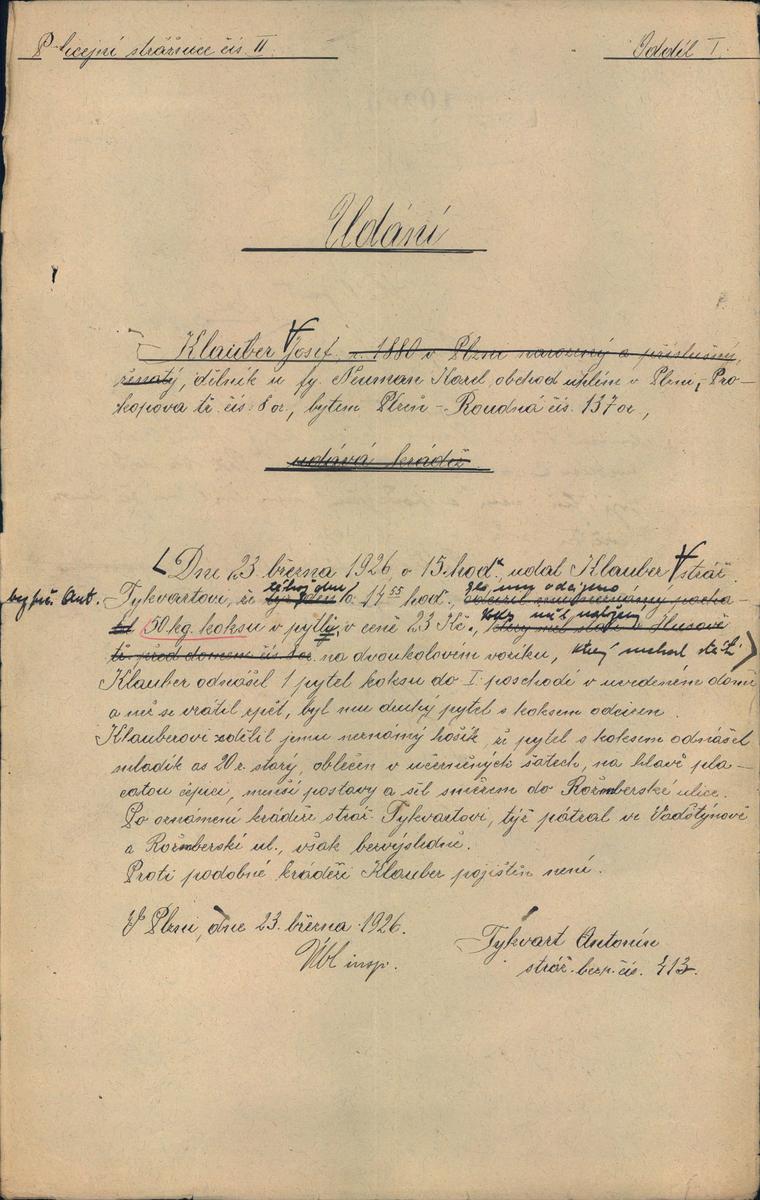 Policejní strážnice čís. II.
Oddíl I.
Udání
Klauber Josef, r. 1880 v Plzni narozený a příslušný,
ženatý, dělník u fy. Neuman Karel, obchod uhlím v Plzni, Pro-
kopova tř. čís. 8 oc, bytem Plzeň - Roudná čís. 137 oc,
udává krádež
Dne 23. března 1926 o 15. hod. udal Klauber stráž.
bezpeč. Ant. Tykvartovi, že téhož dne o 14 55 hod. byl mu odcizeno
odcizil neznámý pacha
tel 50 kg. koksu v pytli, v ceně 23 Kč., když měl naložený
který měl státi v Husově
tř. před domem čís. 8 oc na dvoukolovém vozíku, který nechal státi
Klauber odnášel 1 pytel koksu do I. poschodí v uvedeném domě
a než se vrátil zpět, byl mu druhý pytel s koksem odcizen.
Klauberovi sdělil jemu neznámý hošík, že pytel s koksem odnášel
mladík as 20 r. starý, oblečen v učerněných šatech, na hlavě pla-
catou čepici, menší postavy a šel směrem do Rožmberské ulice.
Po oznámení krádeže stráž. Tykvartovi, týž pátral ve Valdštýnově
a Rožmberské ul., však bezvýsledně.
Proti podobné krádeži Klauber pojištěn není.
V Plzni, dne 23. března 1926.
Tykvart Antonín
Übl insp.
stráž. bezp. čís. 413.